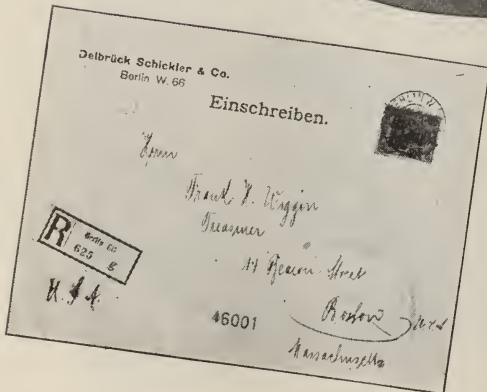 Delbrück Schickler & Co.
Berlin W. 66
Einschreiben.
Herrn
Frank H. Wiggin
Treasurer
14 Beacon Street
Boston
Massachusetts
R
Berlin 66
625 g
U.S.A.
46001